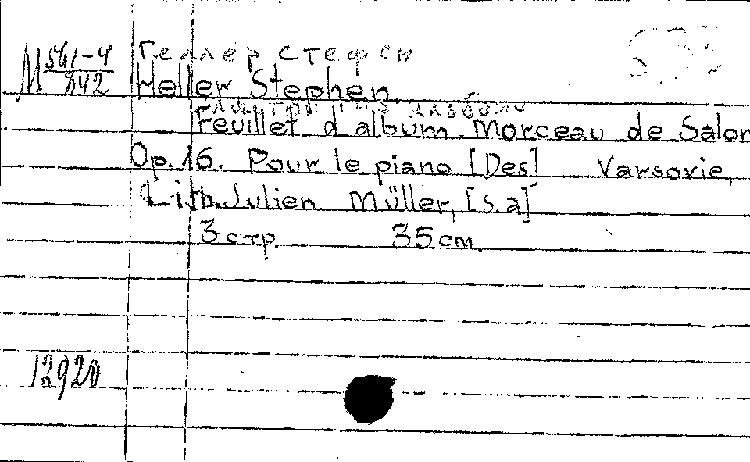 Геллер Стефен
М 561-4/842
Heller, Stephen
Листок из альбома
Feuillet d'album. Morceau de Salon
Op. 16. Pour le piano [Des] Varsovie,
Lith. Julien Müller, [s.a]
3 стр. 35 см.
12920